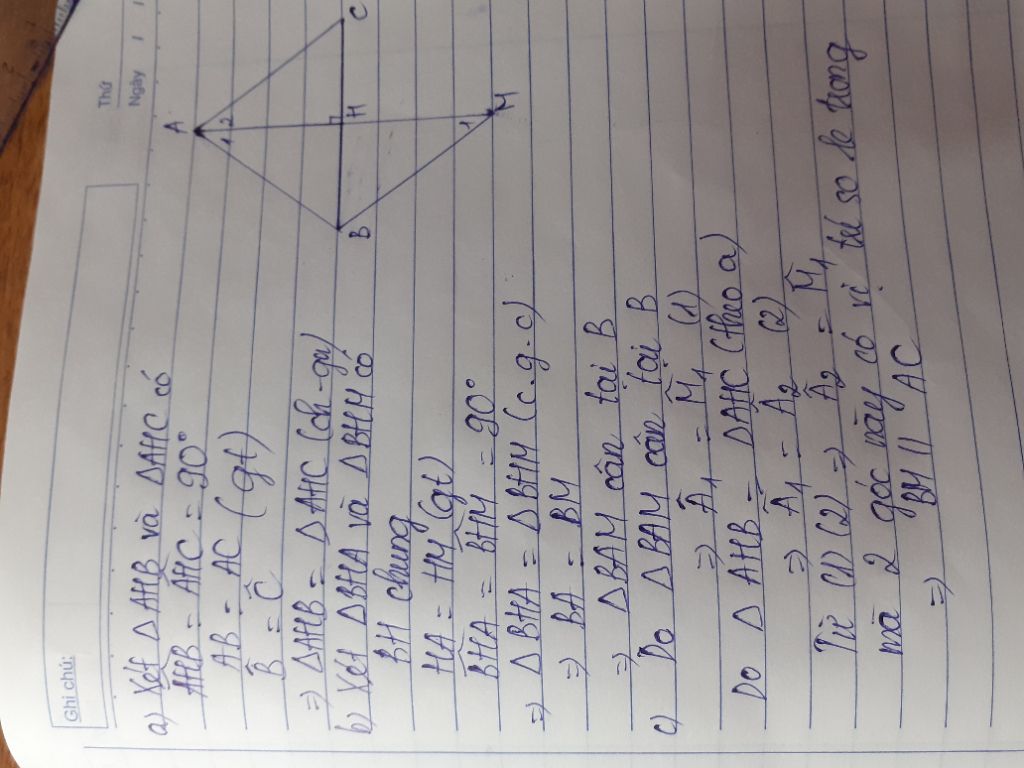 Ghi chú:
Thứ
Ngày
A
1 2
B
H
C
1
M
a) Xét Δ AHB và Δ AHC có
AHB = AHC = 90°
AB = AC (gt)
B̂ = Ĉ
⇒ ΔAHB = ΔAHC (ch-gn)
b) Xét ΔBHA và ΔBHM có
BH chung
HA = HM (gt)
BHA = BHM = 90°
⇒ ΔBHA = ΔBHM (c.g.c)
⇒ BA = BM
⇒ ΔBAM cân tại B
c) Do ΔBAM cân tại B
⇒ Â1 = M̂1 (1)
Do Δ AHB = ΔAHC (theo a)
⇒ Â1 = Â2 (2)
Từ (1) (2) ⇒ Â2 = M̂1
mà 2 góc này có vị trí so le trong
⇒ BM || AC